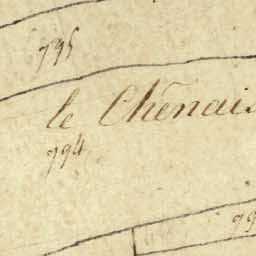 795
le Chênais
794
99